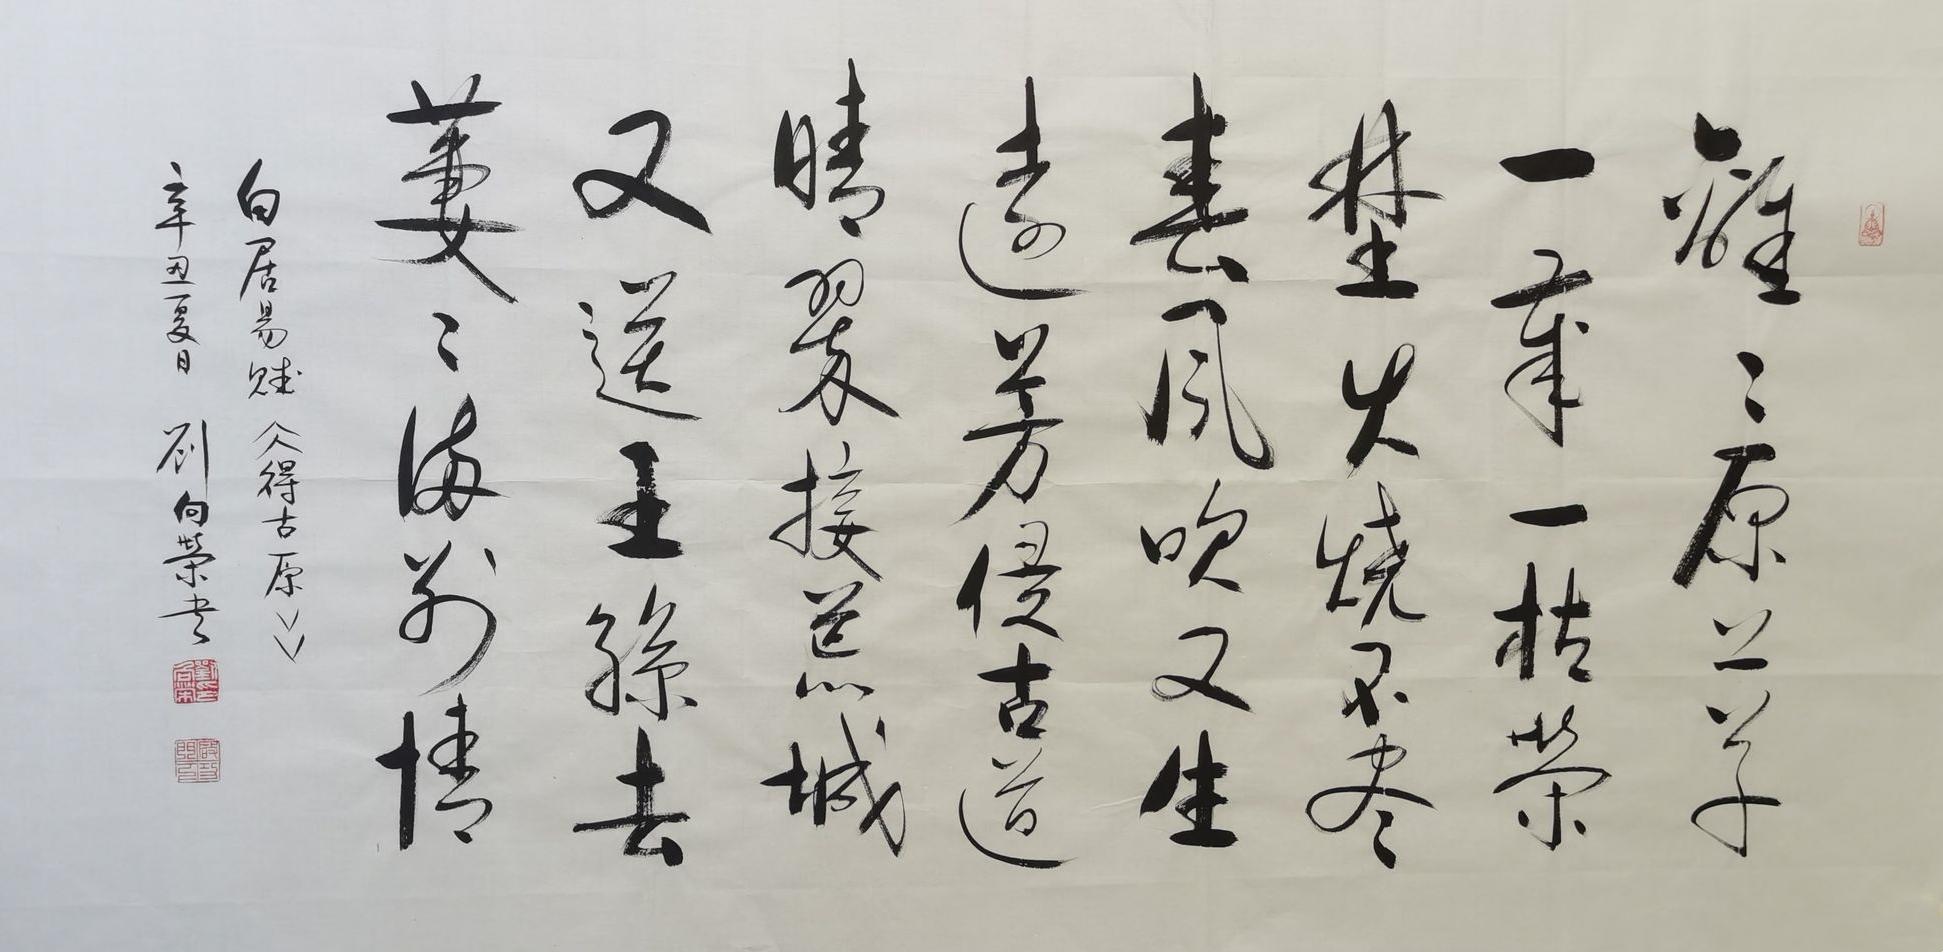 離〻原上草
一歲一枯榮
埜火燒不尽
春風吹又生
遠芳侵古道
晴翠接荒城
又送王孫去
萋〻滿別情
白居易賦得古原
辛丑夏日 劉向榮书